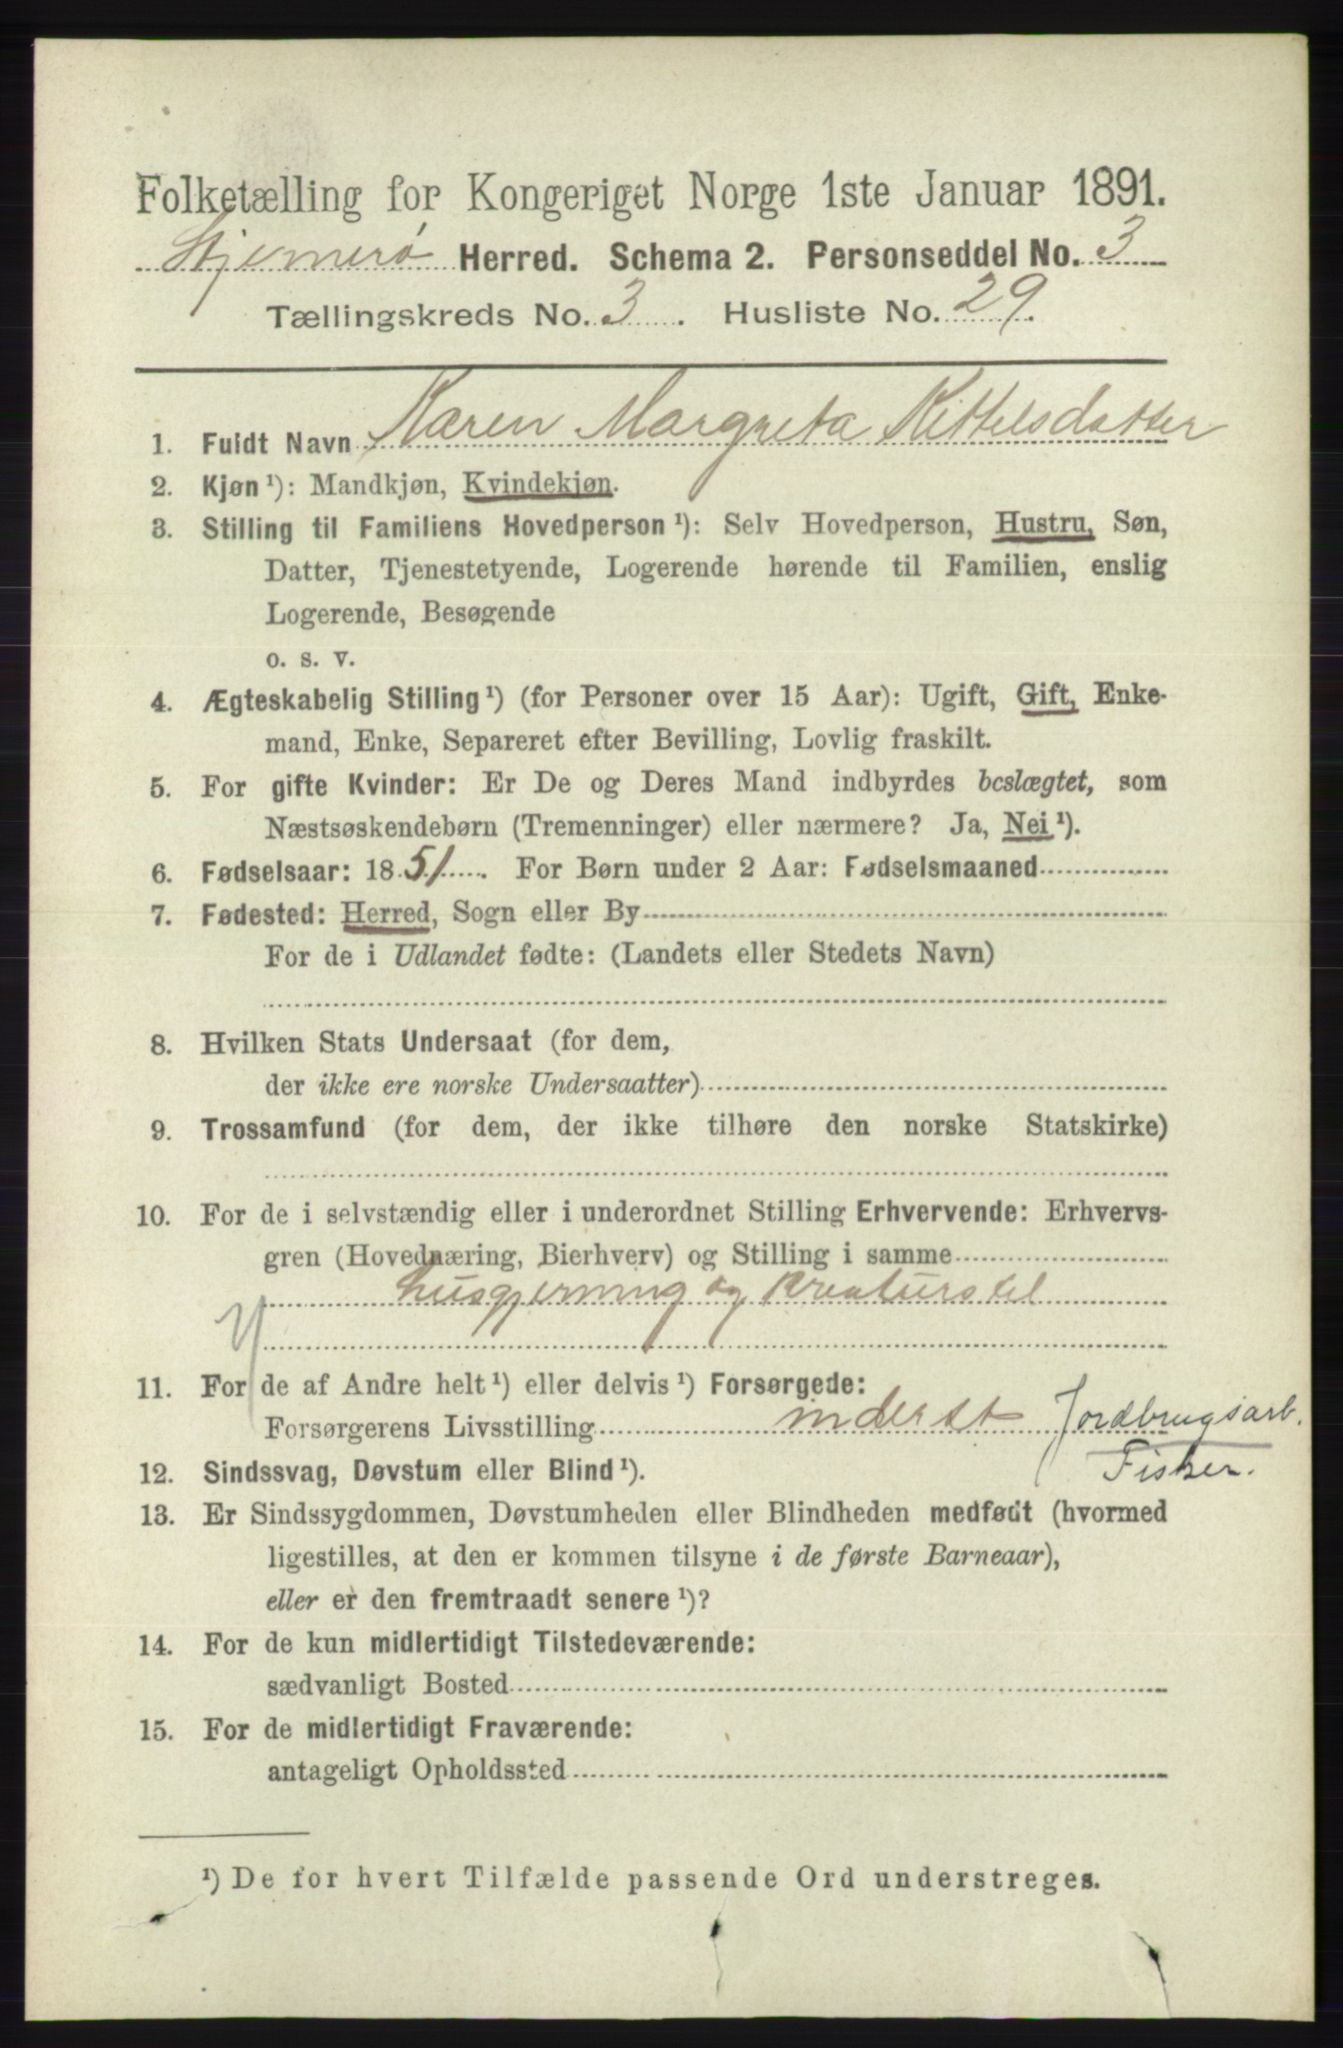 Folketælling for Kongeriget Norge 1ste Januar 1891.
Stjernerø Herred. Schema 2. Personseddel No. 3
Tællingskreds No. 3. Husliste No. 29.
1. Fuldt Navn Karen Margreta Kittelsdatter
2. Kjøn ¹): Mandkjøn, Kvindekjøn.
3. Stilling til Familiens Hovedperson ¹): Selv Hovedperson, Hustru, Søn,
Datter, Tjenestetyende, Logerende hørende til Familien, enslig
Logerende, Besøgende
o. s. v.
4. Ægteskabelig Stilling ¹) (for Personer over 15 Aar): Ugift, Gift, Enke-
mand, Enke, Separeret efter Bevilling, Lovlig fraskilt.
5. For gifte Kvinder: Er De og Deres Mand indbyrdes beslægtet, som
Næstsøskendebørn (Tremenninger) eller nærmere? Ja, Nei ¹).
6. Fødselsaar: 1851. For Børn under 2 Aar: Fødselsmaaned
7. Fødested: Herred, Sogn eller By
For de i Udlandet fødte: (Landets eller Stedets Navn)
8. Hvilken Stats Undersaat (for dem,
der ikke ere norske Undersaatter)
9. Trossamfund (for dem, der ikke tilhøre den norske Statskirke)
10. For de i selvstændig eller i underordnet Stilling Erhvervende: Erhvervs-
gren (Hovednæring, Bierhverv) og Stilling i samme
husgjerning og Kreaturstel
11. For de af Andre helt ¹) eller delvis ¹) Forsørgede:
Forsørgerens Livsstilling inderst Jordbrugsarb.
Fisker.
12. Sindssvag, Døvstum eller Blind ¹).
13. Er Sindssygdommen, Døvstumheden eller Blindheden medfødt (hvormed
ligestilles, at den er kommen tilsyne i de første Barneaar),
eller er den fremtraadt senere ¹)?
14. For de kun midlertidigt Tilstedeværende:
sædvanligt Bosted
15. For de midlertidigt Fraværende:
antageligt Opholdssted
¹) De for hvert Tilfælde passende Ord understreges.